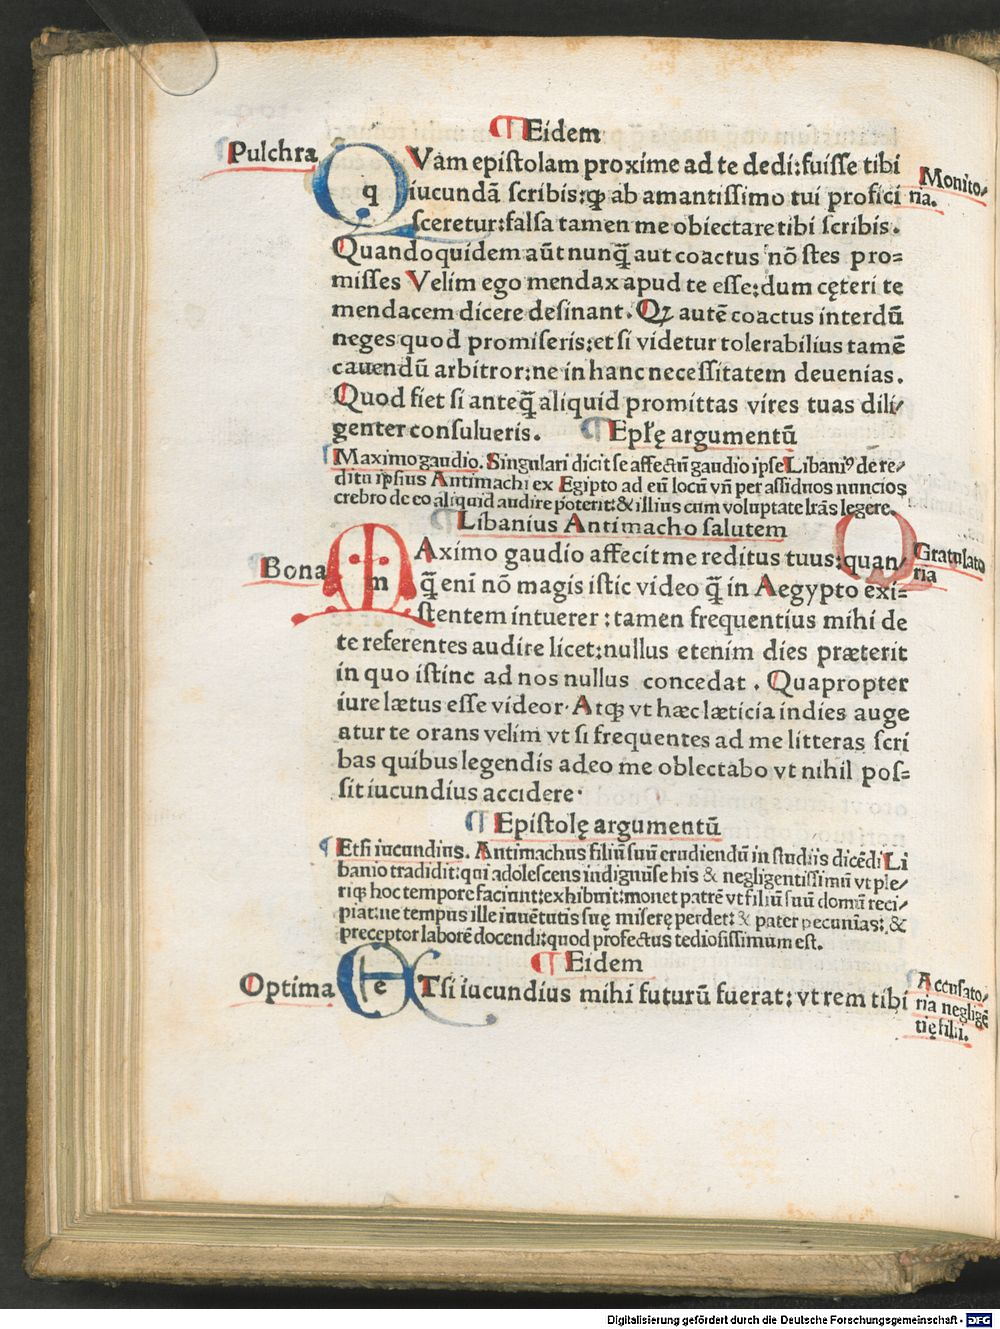 ¶Eidem
Pulchra
qVam epistolam proxime ad te dedi:fuisse tibi
Monito/
iucundā scribis:ꝙ ab amantissimo tui profici
ria.
sceretur:falsa tamen me obiectare tibi scribis.
Quandoquidem aūt nunq̄ aut coactus nō stes pro=
misses Velim ego mendax apud te esse:dum cęteri te
mendacem dicere desinant. Qꝫ autē coactus interdū
neges quod promiseris:et si videtur tolerabilius tamē
cauendū arbitror:ne in hanc necessitatem deuenias.
Quod fiet si anteq̄ aliquid promittas vires tuas dili/
genter consulueris. ¶Epl̄ę argumentū
Maximo gaudio. Singulari dicit se affectū gaudio ipse Libaniꝰ de re/
ditu ipsius Antimachi ex Egipto ad eū locū vn̄ per assiduos nuncios
crebro de eo aliquid audire poterit:& illius cum voluptate lr̄as legere.
¶Libanius Antimacho salutem
Bona
mAximo gaudio affecit me reditus tuus:quan/
Gratulato
ria
q̄ eni nō magis istic video q̄ in Aegypto exi=
stentem intuerer : tamen frequentius mihi de
te referentes audire licet:nullus etenim dies præterit
in quo istinc ad nos nullus concedat . Quapropter
iure lætus esse videor· Atqꝫ vt hæc læticia indies auge
atur te orans velim vt si frequentes ad me litteras scri
bas quibus legendis adeo me oblectabo vt nihil pos=
sit iucundius accidere·
¶Epistolę argumentū
¶Etsi iucundius. Antimachus filiū suū erudiendū in studiis dicēdi Li
banio tradidit:qui adolescens indignu se his & negligentissimū vt ple/
riqꝫ hoc tempore faciunt:exhibuit:monet patrē vt filiū suū domū reci/
piat:ne tempus ille iuuētutis suę miserę perdet:& pater pecunias: &
preceptor laborē docendi:quod profectus tediosissimum est.
¶Eidem
Optima
eTsi iucundius mihi futurū fuerat:vt rem tibi
Accusato/
ria negligē
tię filii.
Digitalisierung gefördert durch die Deutsche Forschungsgemeinschaft - DFG